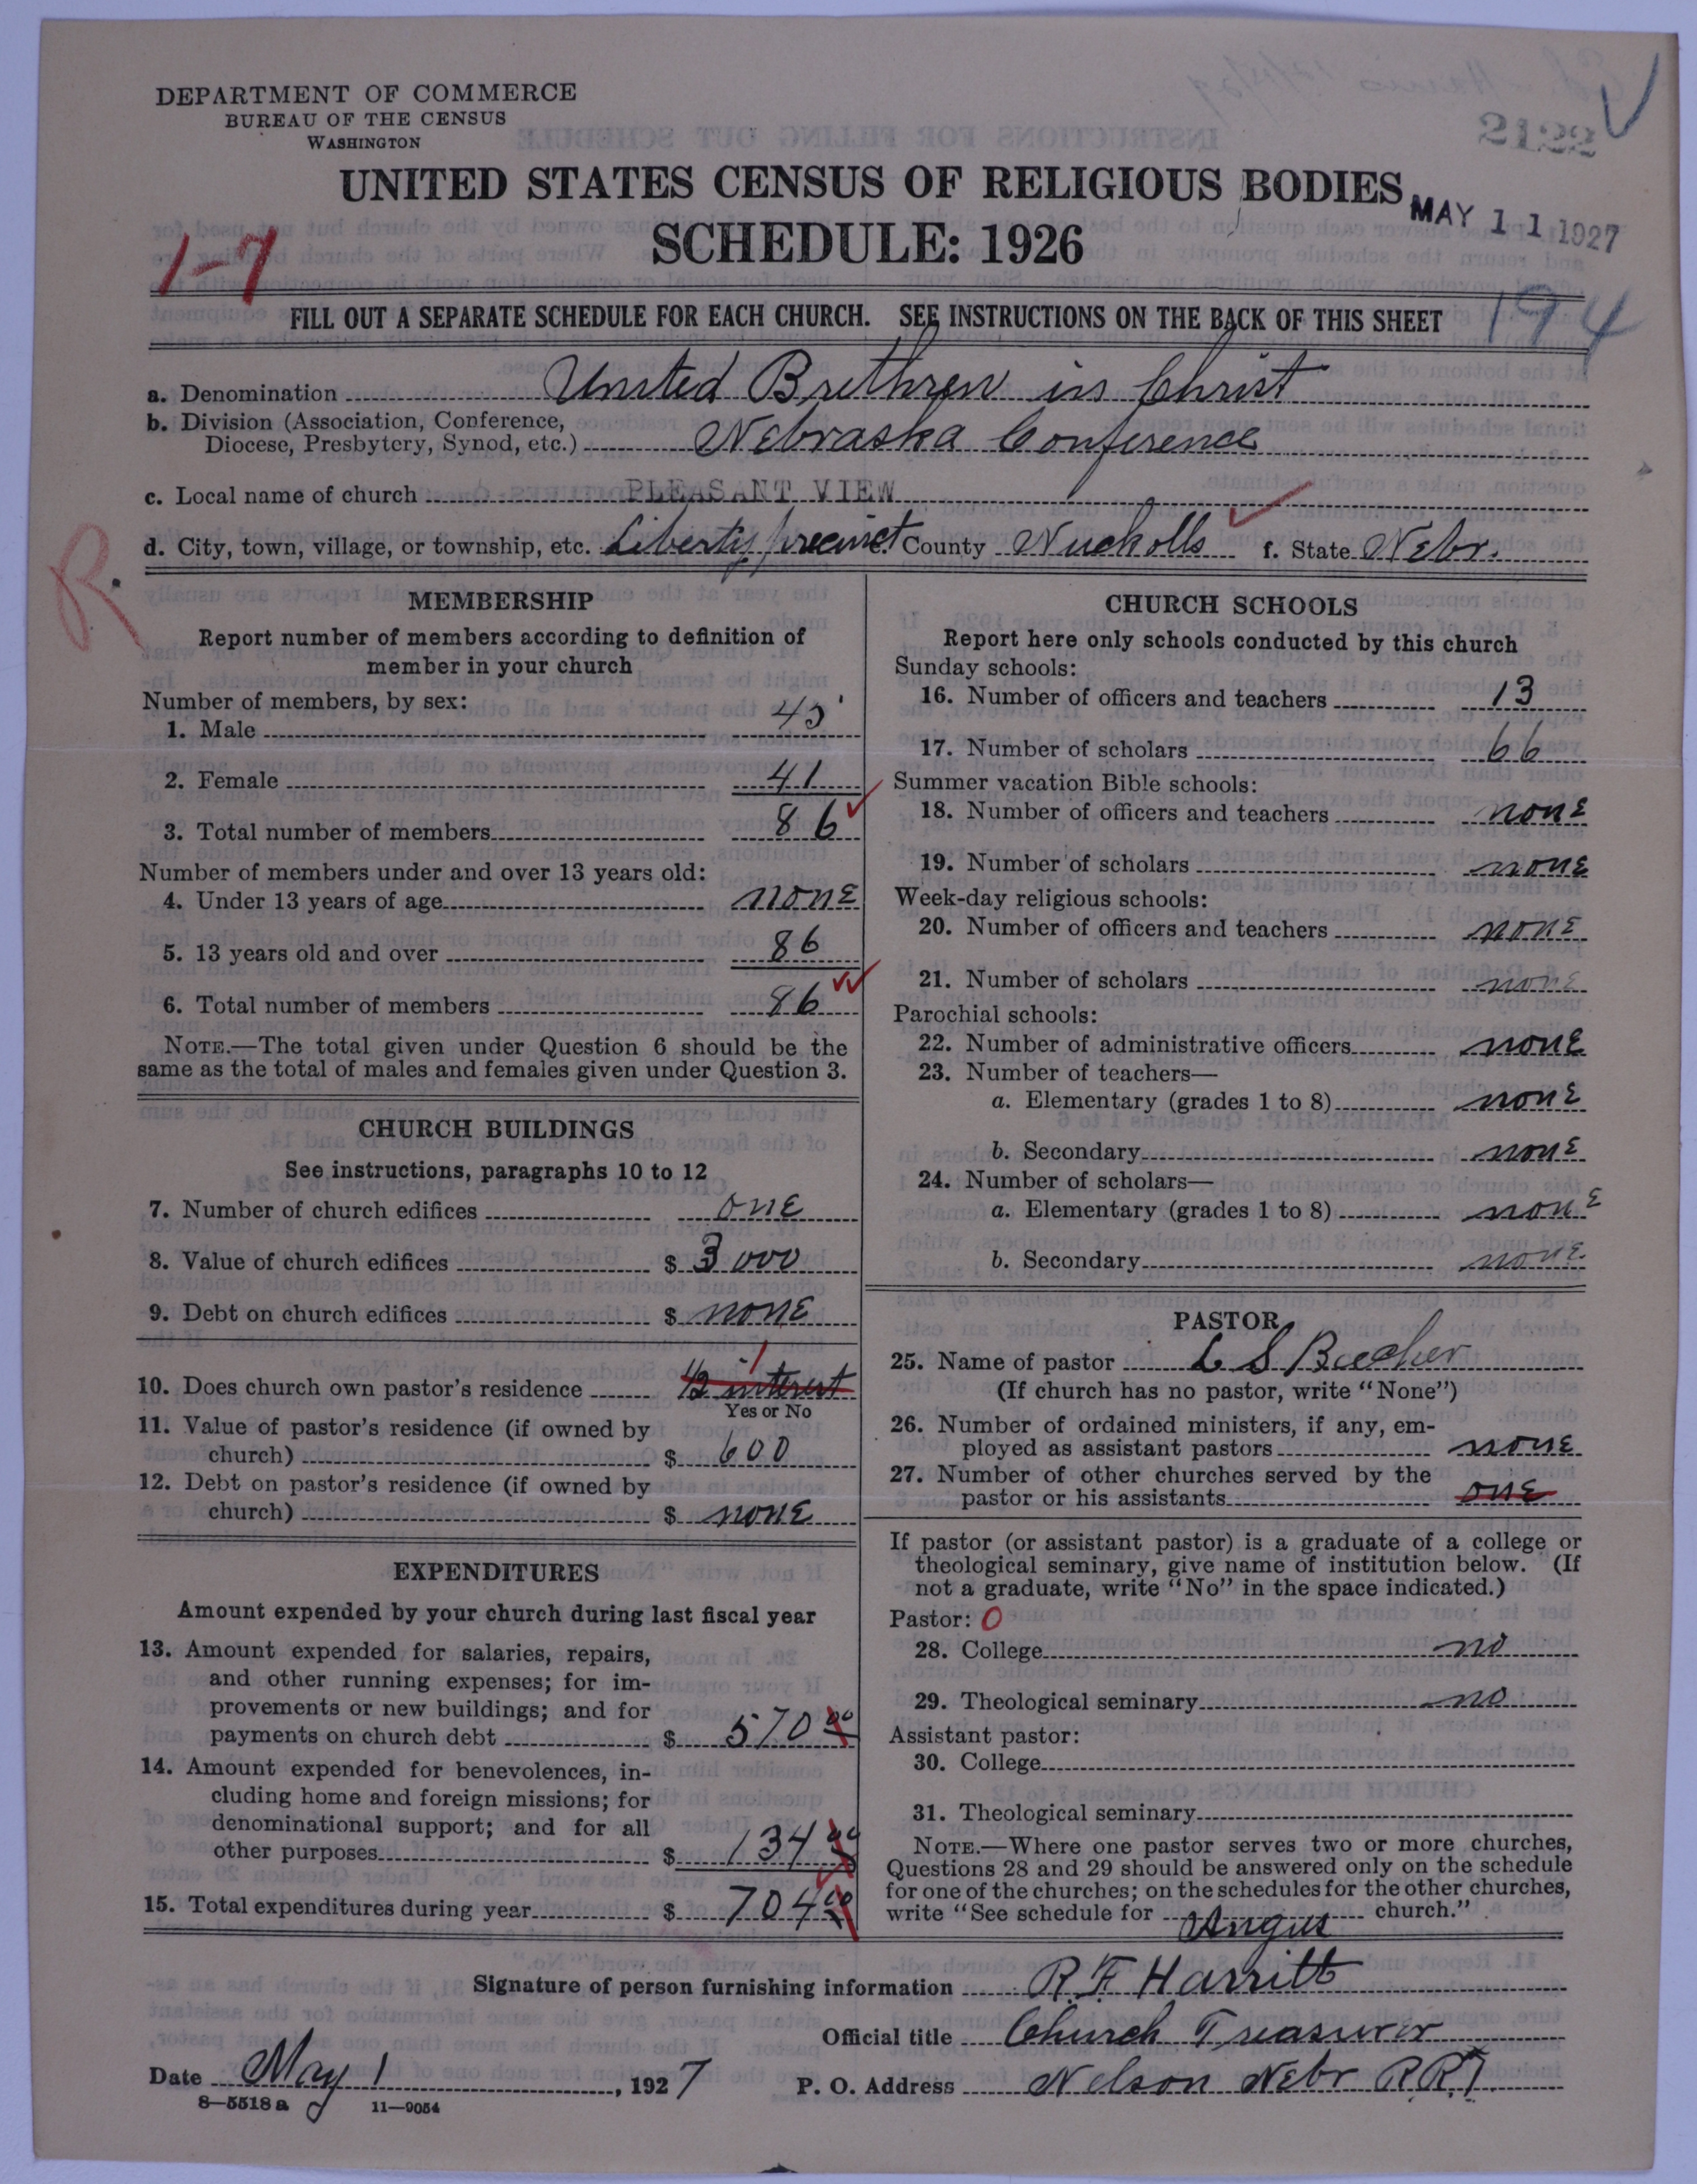 DEPARTMENT OF COMMERCE
BUREAU OF THE CENSUS
WASHINGTON
2122
UNITED STATES CENSUS OF RELIGIOUS BODIES
MAY 11 1927
SCHEDULE: 1926
1-7
FILL OUT A SEPARATE SCHEDULE FOR EACH CHURCH. SEE INSTRUCTIONS ON THE BACK OF THIS SHEET
194
a. Denomination United Brethren in Christ
b. Division (Association, Conference,
Diocese, Presbytery, Synod, etc.) Nebraska Conference
c. Local name of church PLEASANT VIEW
d. City, town, village, or township, etc. Liberty precinct e. County Nuckolls f. State Nebr.
R.
MEMBERSHIP
Report number of members according to definition of
member in your church
Number of members, by sex:
1. Male 45
2. Female 41
3. Total number of members 86
Number of members under and over 13 years old:
4. Under 13 years of age none
5. 13 years old and over 86
6. Total number of members 86
NOTE.—The total given under Question 6 should be the
same as the total of males and females given under Question 3.
CHURCH BUILDINGS
See instructions, paragraphs 10 to 12
7. Number of church edifices one
8. Value of church edifices $ 3000
9. Debt on church edifices $ none
10. Does church own pastor's residence 1/2 interest 1
Yes or No
11. Value of pastor's residence (if owned by
church) $ 600
12. Debt on pastor's residence (if owned by
church) $ none
EXPENDITURES
Amount expended by your church during last fiscal year
13. Amount expended for salaries, repairs,
and other running expenses; for im-
provements or new buildings; and for
payments on church debt $ 570 00
14. Amount expended for benevolences, in-
cluding home and foreign missions; for
denominational support; and for all
other purposes $ 134 00
15. Total expenditures during year $ 704 00
CHURCH SCHOOLS
Report here only schools conducted by this church
Sunday schools:
16. Number of officers and teachers 13
17. Number of scholars 66
Summer vacation Bible schools:
18. Number of officers and teachers none
19. Number of scholars none
Week-day religious schools:
20. Number of officers and teachers none
21. Number of scholars none
Parochial schools:
22. Number of administrative officers none
23. Number of teachers—
a. Elementary (grades 1 to 8) none
b. Secondary none
24. Number of scholars—
a. Elementary (grades 1 to 8) none
b. Secondary none
PASTOR
25. Name of pastor L S Beecher
(If church has no pastor, write "None")
26. Number of ordained ministers, if any, em-
ployed as assistant pastors none
27. Number of other churches served by the
pastor or his assistants one
If pastor (or assistant pastor) is a graduate of a college or
theological seminary, give name of institution below. (If
not a graduate, write "No" in the space indicated.)
Pastor: 0
28. College no
29. Theological seminary no
Assistant pastor:
30. College
31. Theological seminary
NOTE.—Where one pastor serves two or more churches,
Questions 28 and 29 should be answered only on the schedule
for one of the churches; on the schedules for the other churches,
write "See schedule for Angus church."
Signature of person furnishing information R. F. Harritt
Official title Church Treasurer
Date May 1, 1927 P. O. Address Nelson Nebr R.R.1.
8-5518 a 11-9054